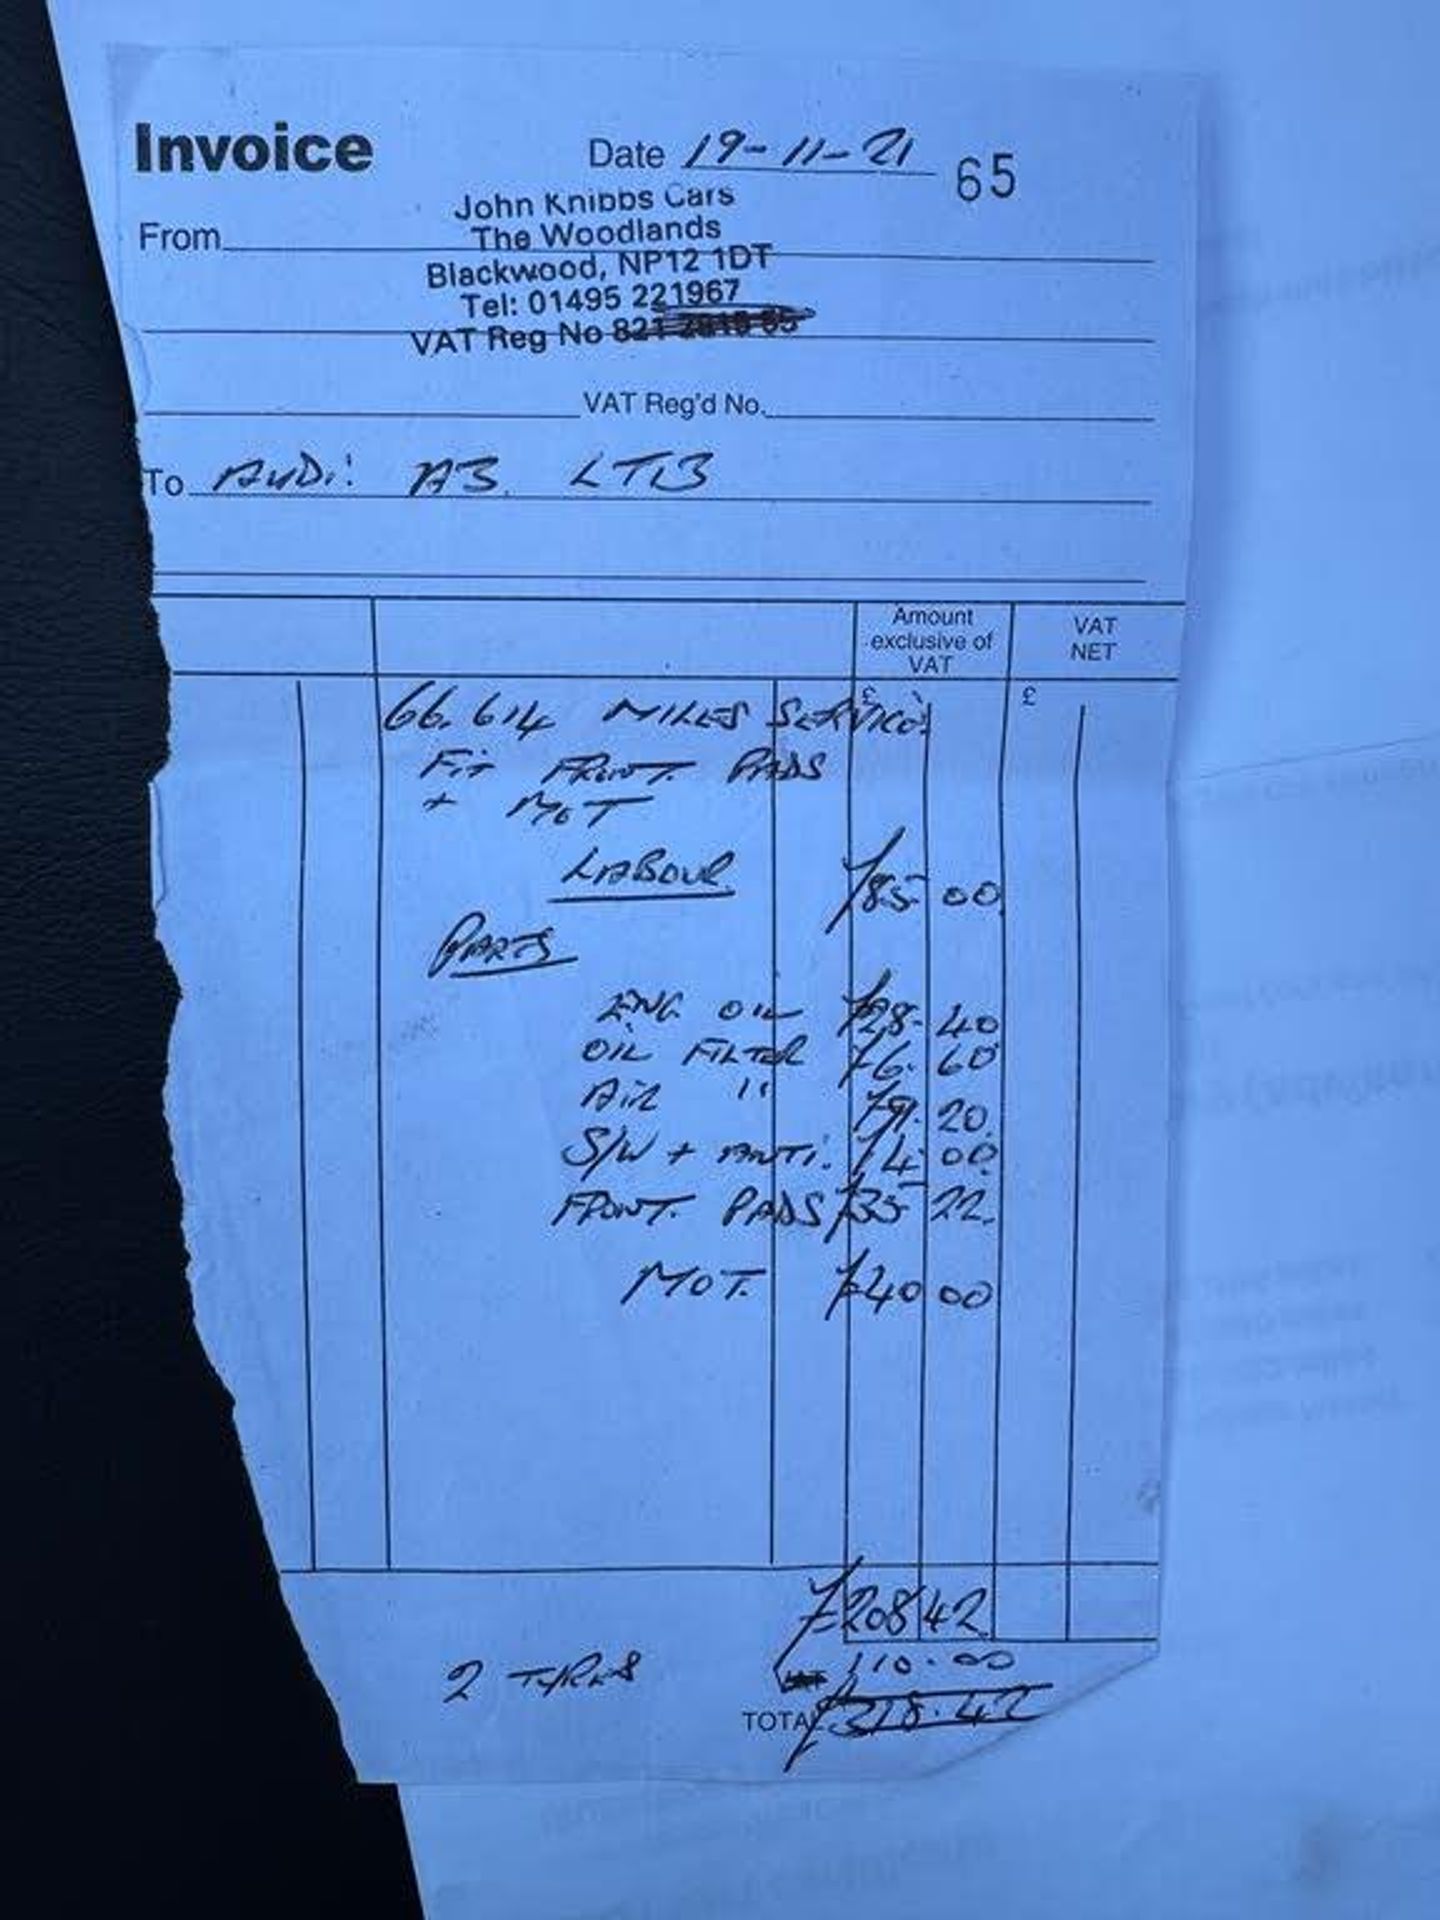 Invoice
Date 19-11-21 65
John Knibbs Cars
From The Woodlands
Blackwood, NP12 1DT
Tel: 01495 221967
VAT Reg No 821
VAT Reg'd No.
To AUDi A3. LT13
Amount exclusive of VAT
VAT NET
£ £
66.614 MILES SERVICE
Fit FRONT. PADS
+ MOT
LABOUR £85-00
PARTS
ENG OIL £28-40
OIL FILTER £6.60
AiR " £9.20
S/W + ANTI. £4.00
FRONT. PADS £35-22.
MOT. £40.00
£208.42
2 TYRES 110.00
TOTAL £318.42